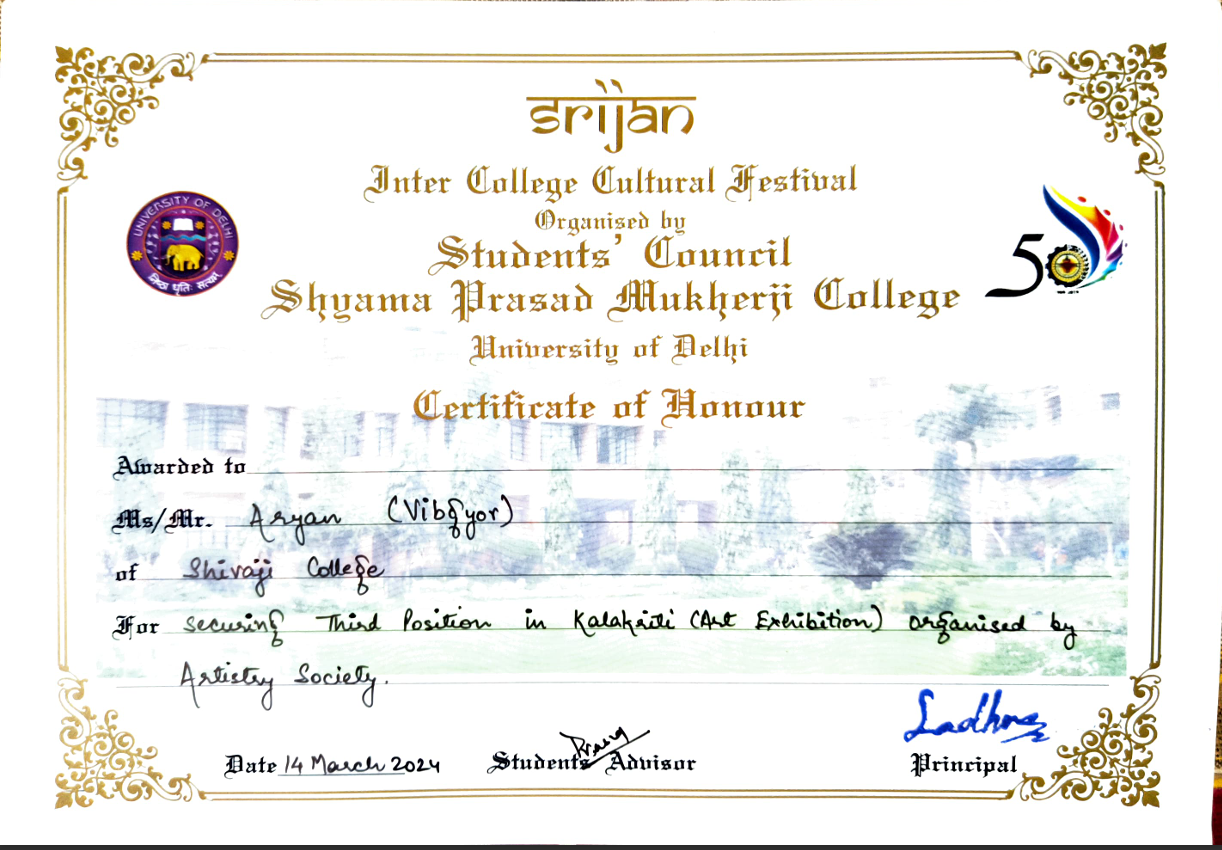 srijan
Inter College Cultural Festival
Organised by
Students' Council
Shyama Prasad Mukherji College
University of Delhi
UNIVERSITY OF DELHI
निष्ठा धृतिः सत्यम्
50
Certificate of Honour
Awarded to
Ms/Mr. Aryan (Vibgyor)
of Shivaji College
For securing Third Position in Kalakriti (Art Exhibition) organised by
Artistry Society.
Date 14 March 2024 Students Advisor Principal